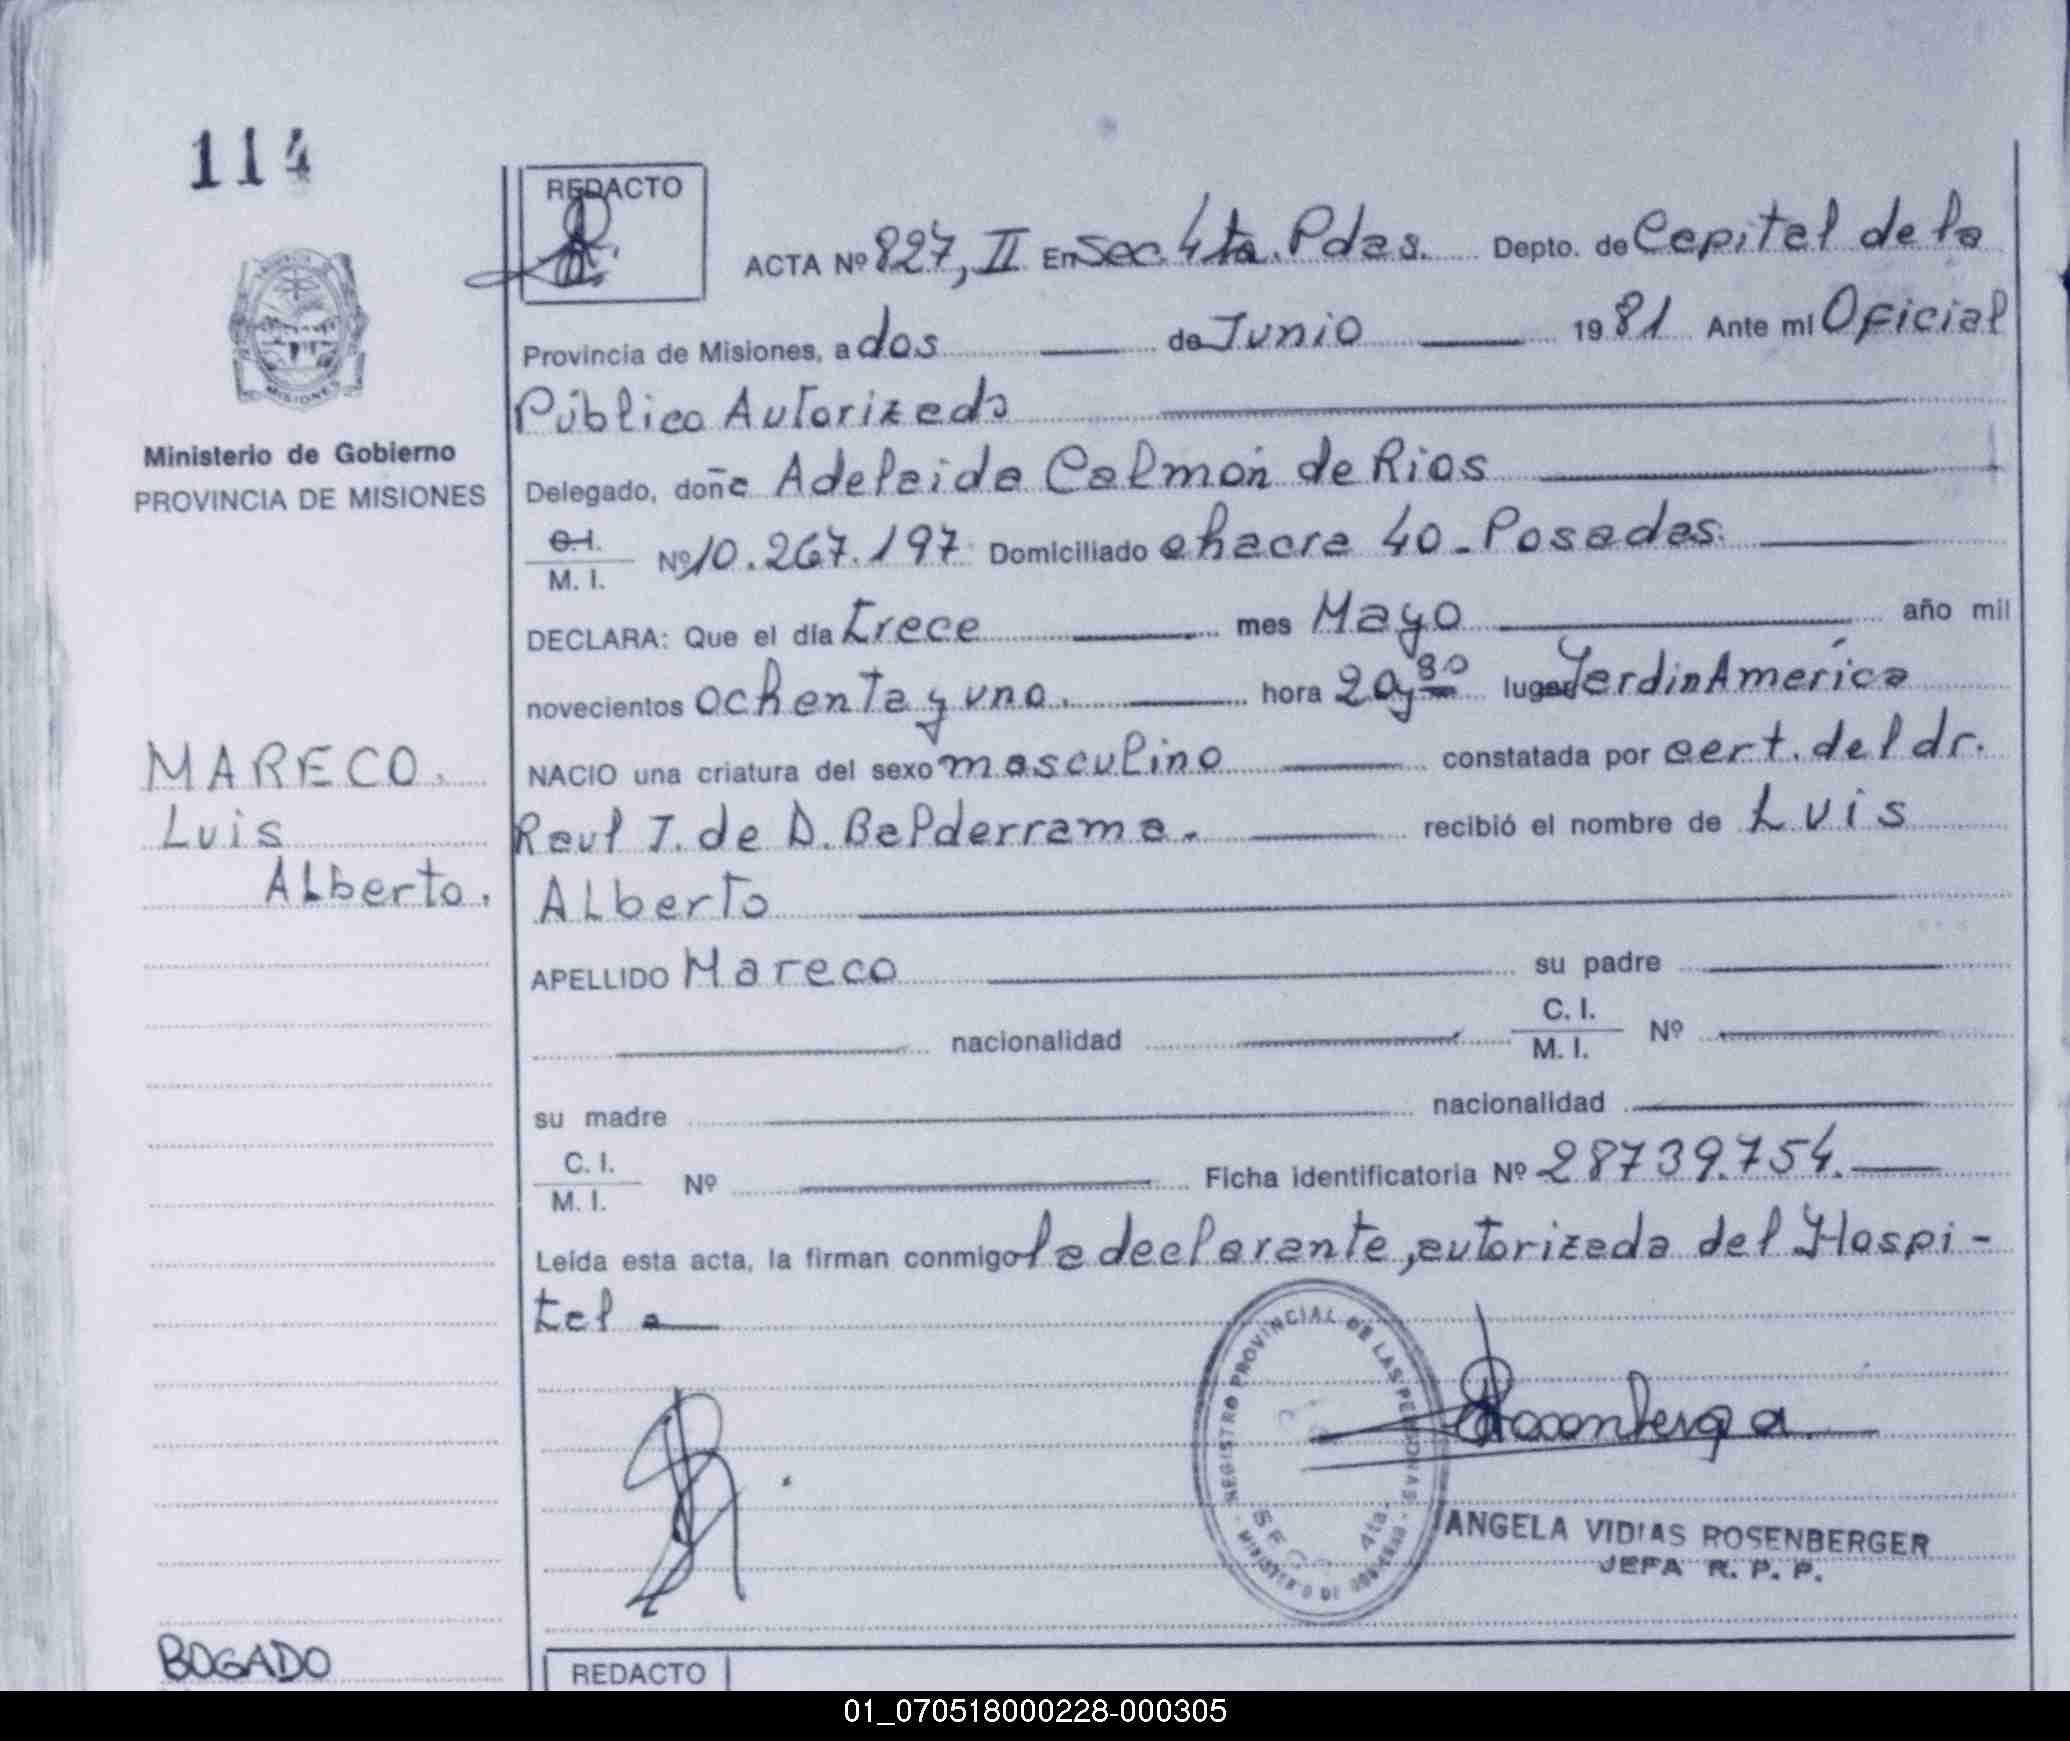 114
REDACTO
ACTA Nº 827, II En Sec. 4ta. Pdas. Depto. de Capital de la
Provincia de Misiones, a dos de Junio 1981 Ante mí Oficial
Público Autorizado
Ministerio de Gobierno
PROVINCIA DE MISIONES
Delegado, doña Adelaida Calmón de Rios
C.I.
M. I. Nº 10.267.197 Domiciliado chacra 40 - Posadas.
DECLARA: Que el día trece mes Mayo año mil
novecientos ochenta y uno. hora 20 y 30 lugar Jardin América
MARECO.
Luis
Alberto.
NACIO una criatura del sexo masculino constatada por cert. del dr.
Raul J. de D. Balderrama. recibió el nombre de Luis
Alberto
APELLIDO Mareco su padre
nacionalidad C. I.
M. I. Nº
su madre nacionalidad
C. I.
M. I. Nº Ficha identificatoria Nº 28739.754.
Leída esta acta, la firman conmigo la declarante, autorizada del Hospi-
tal
REGISTRO PROVINCIAL DE LAS PERSONAS
SECC. 4ta.
MINISTERIO DE GOBIERNO
ANGELA VIDIAS ROSENBERGER
JEFA R. P. P.
BOGADO
REDACTO
01_070518000228-000305